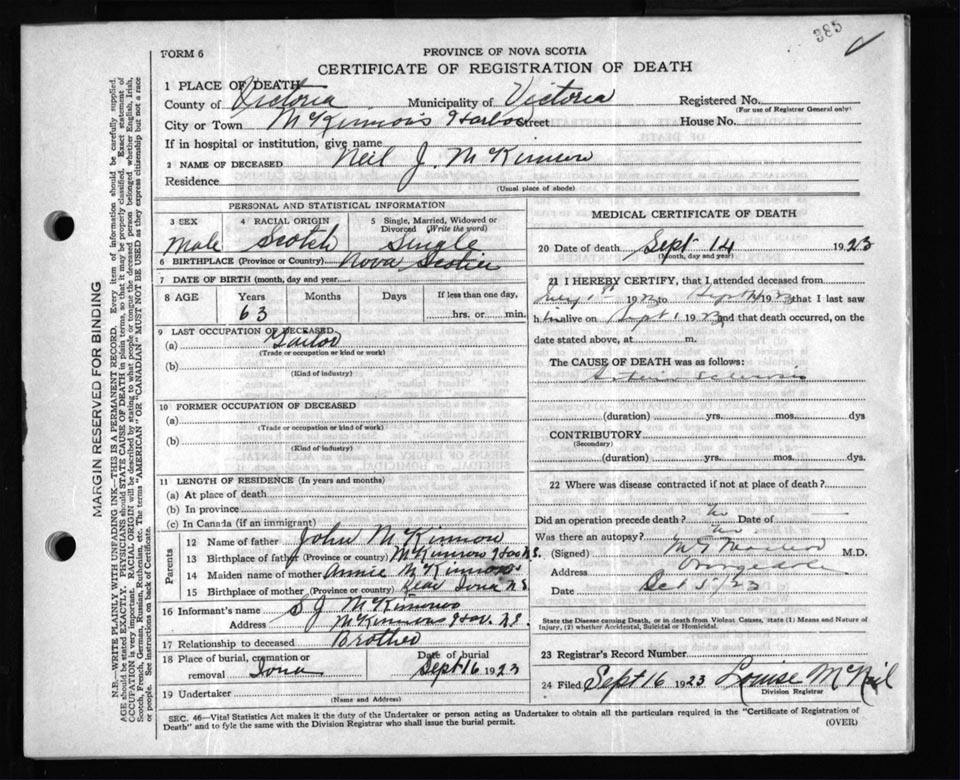 385
FORM 6
PROVINCE OF NOVA SCOTIA
CERTIFICATE OF REGISTRATION OF DEATH
1 PLACE OF DEATH
County of Victoria Municipality of Victoria Registered No.
(For use of Registrar General only)
City or Town McKinnon's Harbor Street House No.
If in hospital or institution, give name
2 NAME OF DECEASED Neil J. McKinnon
Residence
(Usual place of abode)
PERSONAL AND STATISTICAL INFORMATION
3 SEX 4 RACIAL ORIGIN 5 Single, Married, Widowed or Divorced (Write the word)
Male Scotch Single
6 BIRTHPLACE (Province or Country) Nova Scotia
7 DATE OF BIRTH (month, day and year)
8 AGE Years Months Days If less than one day,
63 hrs. or min.
9 LAST OCCUPATION OF DECEASED
(a) Tailor
(Trade or occupation or kind or work)
(b)
(Kind of industry)
10 FORMER OCCUPATION OF DECEASED
(a)
(Trade or occupation or kind of work)
(b)
(Kind of industry)
11 LENGTH OF RESIDENCE (In years and months)
(a) At place of death
(b) In province
(c) In Canada (if an immigrant)
Parents
12 Name of father John McKinnon
13 Birthplace of father (Province or country) McKinnon Har N.S.
14 Maiden name of mother Annie McKinnon
15 Birthplace of mother (Province or country) Rear Iona N.S.
16 Informant's name S J McKinnon
Address McKinnons Har. N.S.
17 Relationship to deceased Brother
18 Place of burial, cremation or removal Iona Date of burial Sept 16 1923
19 Undertaker
(Name and Address)
MEDICAL CERTIFICATE OF DEATH
20 Date of death Sept 14 1923
(Month, day and year)
21 I HEREBY CERTIFY, that I attended deceased from
1923 to Sept 1923 that I last saw
him alive on Sept 1 1923 and that death occurred, on the
date stated above, at m.
The CAUSE OF DEATH was as follows:
Arterio sclerosis
(duration) yrs. mos. dys
CONTRIBUTORY
(Secondary)
(duration) yrs. mos. dys.
22 Where was disease contracted if not at place of death?
Did an operation precede death? No Date of
Was there an autopsy? No
(Signed) M.D.
Address Orangedale
Date Oct 5/23
State the Disease causing Death, or in death from Violent Causes, state (1) Means and Nature of Injury, (2) whether Accidental, Suicidal or Homicidal.
23 Registrar's Record Number
24 Filed Sept 16 1923 Louise McNeil
Division Registrar
SEC. 46—Vital Statistics Act makes it the duty of the Undertaker or person acting as Undertaker to obtain all the particulars required in the "Certificate of Registration of
Death" and to fyle the same with the Division Registrar who shall issue the burial permit.
(OVER)
MARGIN RESERVED FOR BINDING
N.B.—WRITE PLAINLY WITH UNFADING INK—THIS IS A PERMANENT RECORD. Every item of information should be carefully supplied.
AGE should be stated EXACTLY. PHYSICIANS should STATE CAUSE OF DEATH in plain terms, so that it may be properly classified. Exact statement of
OCCUPATION is very important. RACIAL ORIGIN will be described by stating to what people or tongue the deceased person belonged whether English, Irish,
Scotch, French, German, Russian, Ruthenian, etc. The terms "AMERICAN" OR "CANADIAN" MUST NOT BE USED as they express citizenship but not a race
or people. See instructions on back of Certificate.